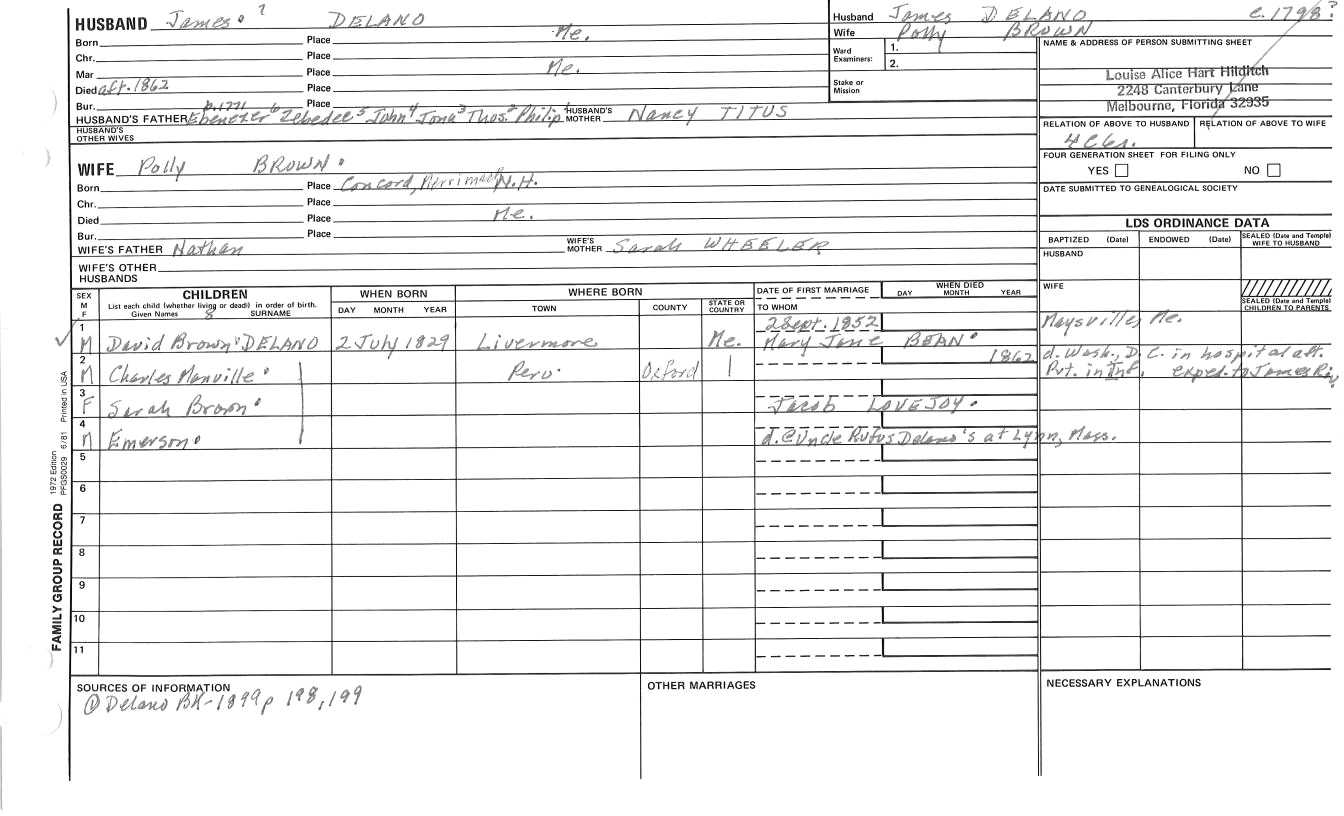 HUSBAND James ? DELANO
Born Place Me.
Chr. Place
Mar Place Me.
Died aft. 1862 Place
Bur. Place
b.1771
HUSBAND'S FATHER Ebenezer 6 Zebedee 5 John 4 Jona 3 Thos. 2 Philip 1 HUSBAND'S MOTHER Nancy TITUS
HUSBAND'S OTHER WIVES
Husband James DELANO c.1798?
Wife Polly BROWN
Ward Examiners: 1.
2.
Stake or Mission
NAME & ADDRESS OF PERSON SUBMITTING SHEET
Louise Alice Hart Hilditch
2248 Canterbury Lane
Melbourne, Florida 32935
RELATION OF ABOVE TO HUSBAND RELATION OF ABOVE TO WIFE
FOUR GENERATION SHEET FOR FILING ONLY
YES NO
DATE SUBMITTED TO GENEALOGICAL SOCIETY
WIFE Polly BROWN
Born Place Concord, Merrimack N.H.
Chr. Place
Died Place Me.
Bur. Place
WIFE'S FATHER Nathan WIFE'S MOTHER Sarah WHEELER
WIFE'S OTHER HUSBANDS
LDS ORDINANCE DATA
BAPTIZED (Date) ENDOWED (Date) SEALED (Date and Temple) WIFE TO HUSBAND
HUSBAND
WIFE
SEALED (Date and Temple) CHILDREN TO PARENTS
SEX M F CHILDREN WHEN BORN WHERE BORN DATE OF FIRST MARRIAGE WHEN DIED
List each child (whether living or dead) in order of birth.
Given Names 8 SURNAME DAY MONTH YEAR TOWN COUNTY STATE OR COUNTRY TO WHOM DAY MONTH YEAR
1 2 Sept. 1852 Maysville, Me.
M David Brown DELANO 2 July 1829 Livermore Me. Mary Jane BEAN
2 1862 d. Wash., D.C. in hospital aft.
M Charles Manville Peru Oxford Pvt. in Inf. exped. to James Riv,
3
F Sarah Brown Jacob LOVEJOY
4
M Emerson d. @ Uncle Rufus Delano's at Lynn, Mass.
5
6
7
8
9
10
11
SOURCES OF INFORMATION
Delano BK-1899 p 198,199
OTHER MARRIAGES
NECESSARY EXPLANATIONS
FAMILY GROUP RECORD 1972 Edition PFGS0029 6/81 Printed in USA